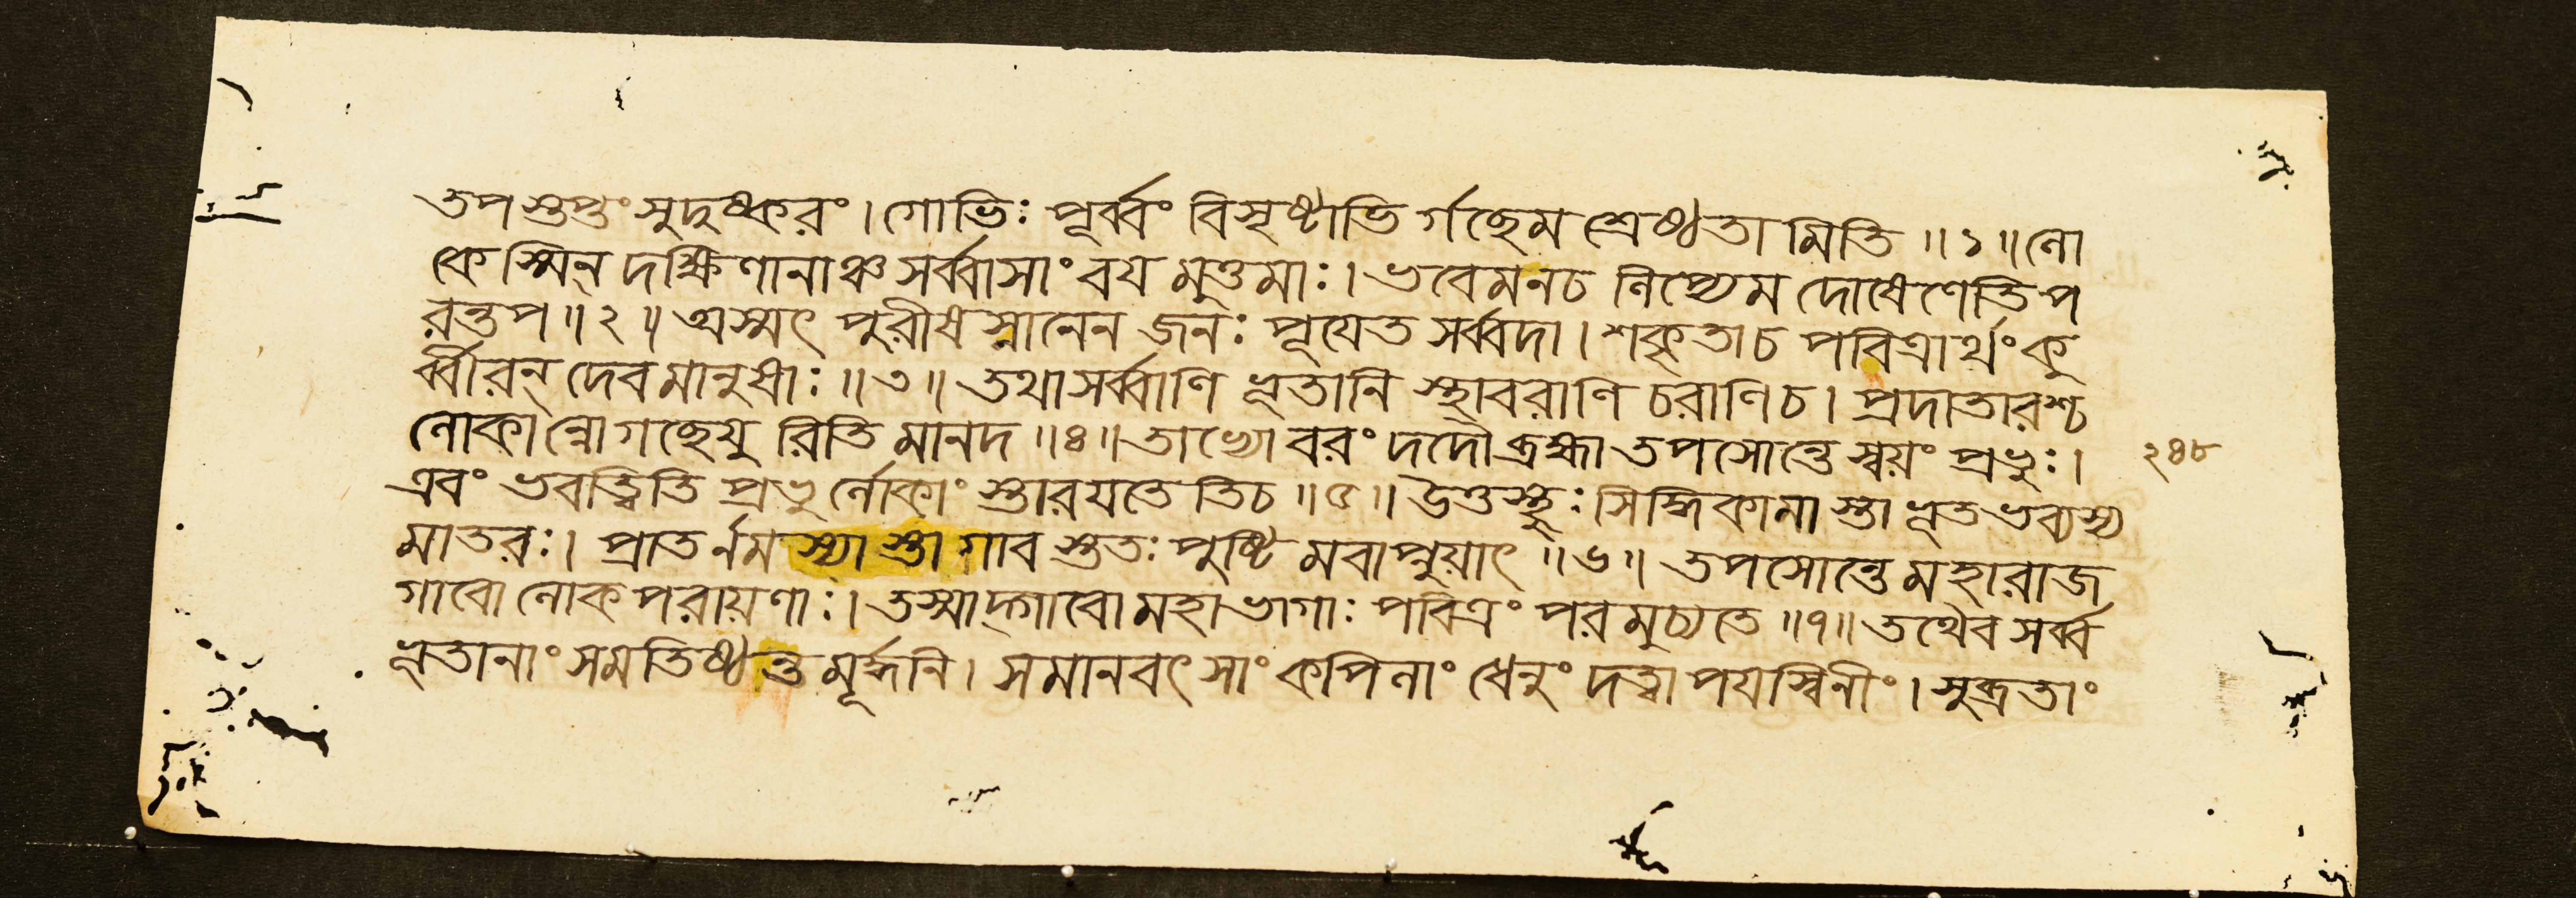 তপস্তপ্তং সুদুষ্করং । গোভিঃ পূর্ব্বং বিসৃষ্টাভি র্গছেম শ্রেষ্ঠতা মিতি ॥ ১ ॥ লো
কেস্মিন্ দক্ষিণানাঞ্চ সর্ব্বাসাং বয মুত্তমাঃ । ভবেম নচ লিপ্যেম দোষেণেতি প
রন্তপ ॥ ২ ॥ অস্মৎ পুরীষ স্নানেন জনঃ পূযেত সর্ব্বদা । শকৃতা চ পবিত্রার্থং কু
র্ব্বীরন্ দেব মানুষাঃ ॥ ৩ ॥ তথা সর্ব্বাণি ভূতানি স্থাবরাণি চরাণি চ । প্রদাতারশ্চ
লোকান্নো গছেযু রিতি মানদ ॥ ৪ ॥ তাভ্যো বরং দদৌ ব্রহ্মা তপসোন্তে স্বয়ং প্রভুঃ । ২৪৮
এবং ভবত্বিতি প্রভু র্লোকাং স্তারযতে তি চ ॥ ৫ ॥ উত্তস্থুঃ সিদ্ধিকামা স্তা ভূত ভব্যস্য
মাতরঃ । প্রাত র্নম স্যা স্তা গাব স্ততঃ পুষ্টি মবাপ্নুয়াৎ ॥ ৬ ॥ তপসোন্তে মহারাজ
গাবো লোক পরায়ণাঃ । তস্মাদ্গাবো মহাভাগাঃ পবিত্রং পরমুচ্যতে ॥ ৭ ॥ তথৈব সর্ব্ব
ভূতানাং সমতিষ্ঠন্ত মূর্দ্ধনি । সমানবৎসাং কপিলাং ধেনুং দত্বা পযস্বিনীং । সুব্রতাং